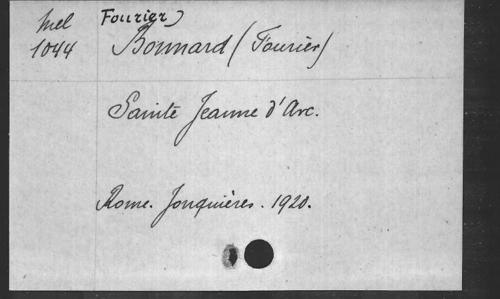 Mel Fourier)
1044 Bonnard (Fourier)
Sainte Jeanne d'Arc.
Rome. Jonquières. 1920.